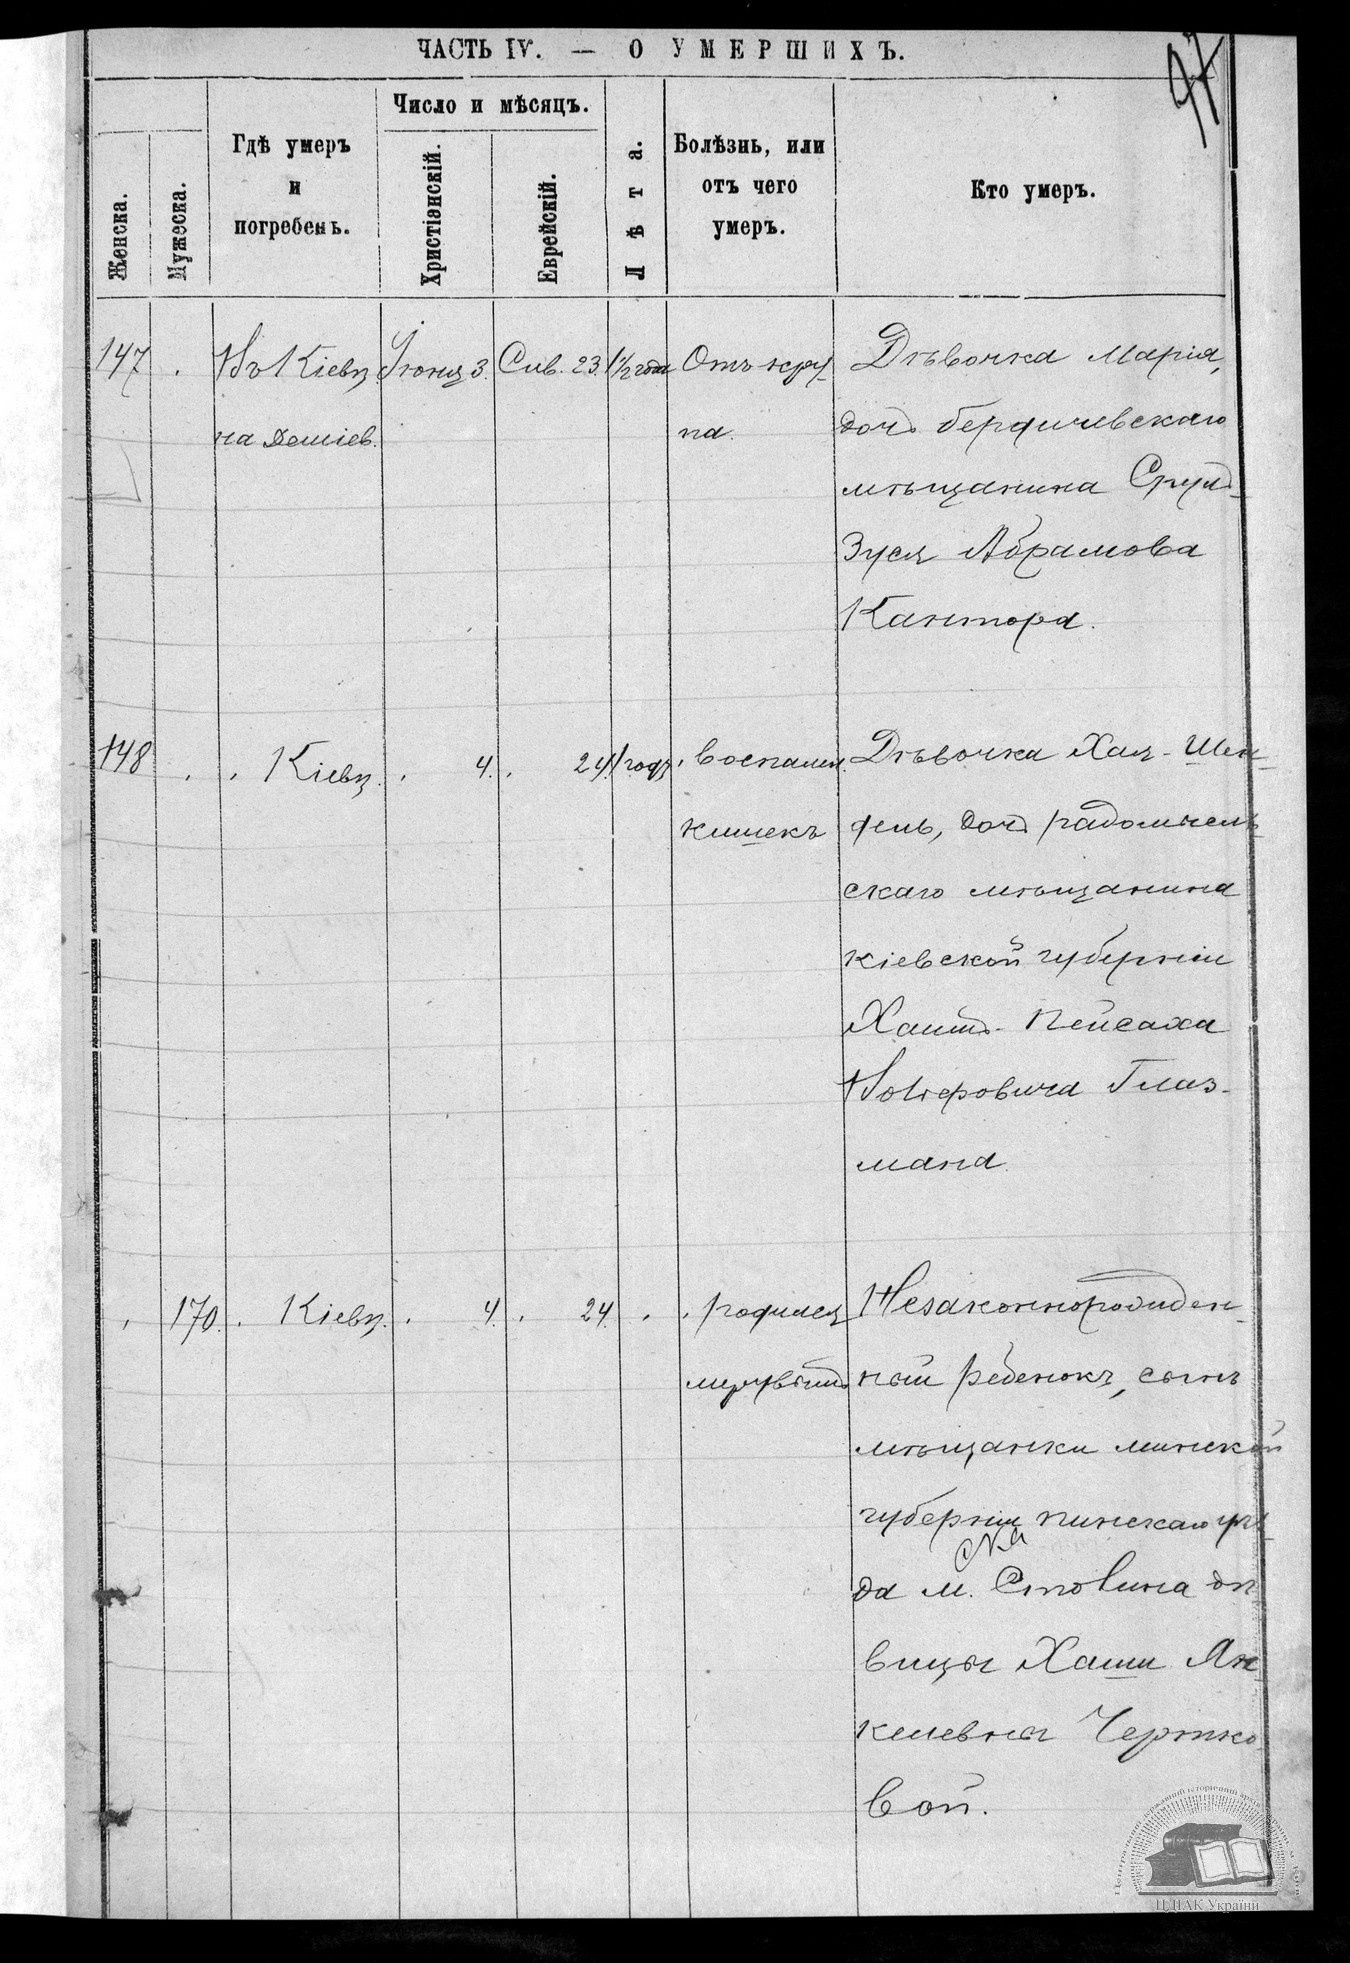 ЧАСТЬ IV. — О УМЕРШИХЪ.
97
Женска.
Мужеска.
Гдѣ умеръ
и
погребенъ.
Число и мѣсяцъ.
Христіанскій.
Еврейскій.
Лѣта.
Болѣзнь, или
отъ чего
умеръ.
Кто умеръ.
147 . Въ Кіевѣ Іюня 3. Сив. 23. 1½ года Отъ кру- Дѣвочка Марія,
на Деміев. па. дочь бердичевскаго
мѣщанина Сруль-
Зуся Абрамова
Кантора.
148 . . Кіевѣ. . 4. . 24. 1 годъ . воспален. Дѣвочка Хая-Шен-
кишекъ фель, дочь радомысель-
скаго мѣщанина
кіевской губерніи
Хаимъ-Пейсаха
Глаз-
мана
. 170. . Кіевѣ. . 4. . 24. . . родился Незаконнорожден-
мертвымъ ный ребенокъ, сынъ
мѣщанки минской
губерніи пинскаго уѣз-
да м. Столина дѣ
вицы Хаши Ян-
келевны Чертко-
вой.
ЦДІАК України